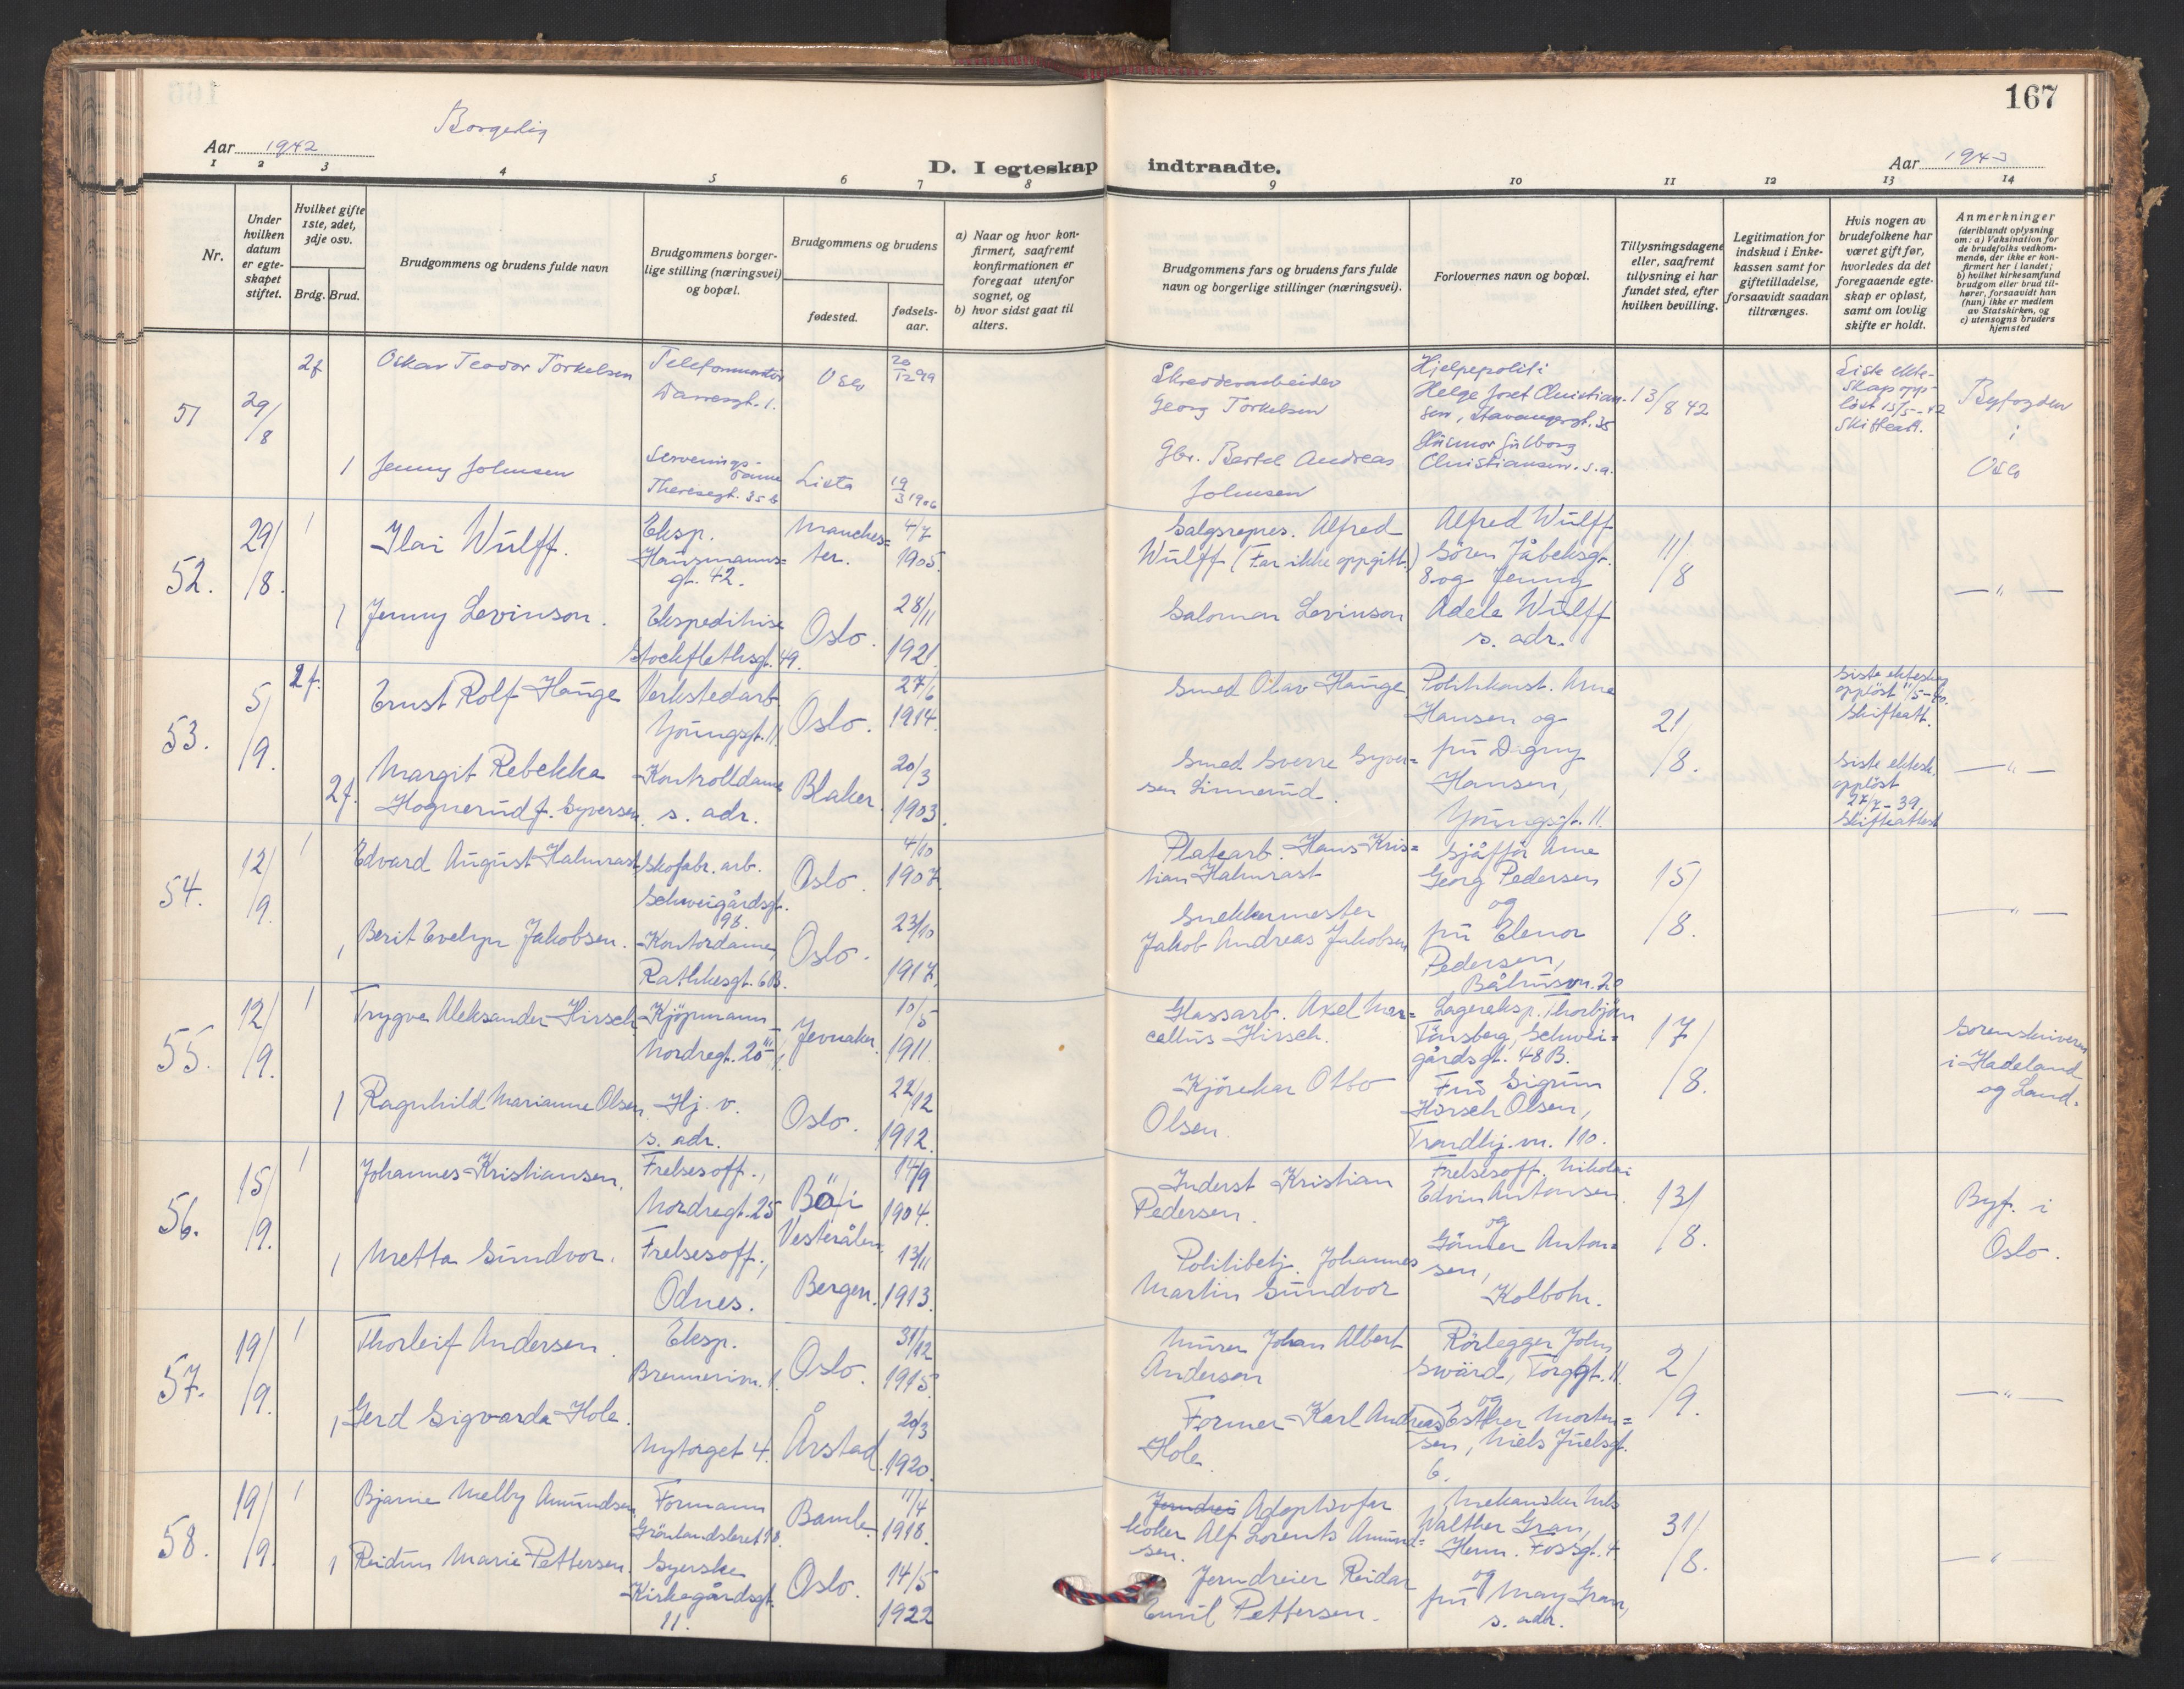 167
Borgerlig
Aar 1942
D. I egteskap indtraadte.
Aar 194
1 2 3 4 5 6 7 8 9 10 11 12 13 14
Nr.
Under hvilken datum er egteskapet stiftet.
Hvilket gifte 1ste, 2det, 3dje osv.
Brdg. Brud.
Brudgommens og brudens fulde navn
Brudgommens borgerlige stilling (næringsvei) og bopæl.
Brudgommens og brudens
fødested.
fødselsaar.
a) Naar og hvor konfirmert, saafremt konfirmationen er foregaat utenfor sognet, og
b) hvor sidst gaat til alters.
Brudgommens fars og brudens fars fulde navn og borgerlige stillinger (næringsvei).
Forlovernes navn og bopæl.
Tillysningsdagene eller, saafremt tillysning ei har fundet sted, efter hvilken bevilling.
Legitimation for indskud i Enkekassen samt for giftetilladelse, forsaavidt saadan tiltrænges.
Hvis nogen av brudefolkene har været gift før, hvorledes da det foregaaende egteskap er opløst, samt om lovlig skifte er holdt.
Anmerkninger (deriblandt oplysning om: a) Vaksination for de brudefolks vedkommende, der ikke er konfirmert her i landet; b) hvilket kirkesamfund brudgom eller brud tilhører, forsaavidt han (hun) ikke er medlem av Statskirken, og c) utensogns bruders hjemsted
51
29/8
2f
Oskar Teodor Torkelsen
Telefonmontør
Oslo
20/12 99
Skredderarbeider
Georg Torkelsen
Hjelpepoliti
Helge Josef Christiansen, Stavangergt. 35
13/8 42
Siste ekteskap oppløst 15/5-42
Skifteatt.
Byfogden
i
Oslo
1
Jenny Johnsen
Serveringsdame
Theresegt. 35 b
Lista
19/3 1906
Gbr. Bertel Andreas
Johnsen
Christiansen. s.a.
52.
29/8.
1
Ilai Wulff.
Eksp.
Hausmannsgt. 42.
Manchester.
4/7
1905.
Salgsrepres. Alfred
Wulff (Far ikke oppgitt.)
Alfred Wulff
Sören Jåbeksgt.
8 og Jenny
Adele Wulff
s. adr.
11/8
— " —
1
Jenny Levinson.
Ekspeditrise
Stockflethsgt. 49.
Oslo.
28/11
1921.
Salomon Levinson
53.
5/9.
2f.
Ernst Rolf Hauge
Verkstedarb
Youngsgt. 11
Oslo.
27/6
1914.
Smed Olav Hauge
Politikonst. Arne
Hansen og
fru Dagny
Hansen,
Youngsgt. 11.
21/8.
Siste ekteskap
oppløst /5-40.
Skifteatt.
2f.
Margit Rebekka
Hognerud f. Syversen.
Kontrolldame
s. adr.
Blaker.
20/3
1903.
Smed Sverre Syversen Linnerud.
Siste ektesk.
oppløst
27/7-39.
Skifteattest
— " —
54.
12/9.
1
Edvard August Halmrast
Skofabr. arb.
Schweigårdsgt.
98.
Oslo.
4/10
1907.
Platearb. Hans Kristian Halmrast
Sjåffør Arne
Georg Pedersen
og
fru Elenor
Pedersen,
15/8.
— " —
1
Berit Evelyn Jakobsen.
Kontordame,
Rathkesgt. 6B.
Oslo.
23/10
1917.
Snekkermester
Jakob Andreas Jakobsen
55.
12/9.
1
Trygve Aleksander Hirsch
Kjøpmann
Nordregt. 20 III,
Jevnaker.
10/5
1911.
Glassarb. Axel Marcellius Hirsch.
Lagereksp. Thorbjörn
Tönsberg, Schweigårdsgt. 48 B.
Fru Sigrun
Hirsch Olsen,
Trondhj.vn. 110.
17/8.
Sorenskriveren
i Hadeland
og Land.
1
Ragnhild Marianne Olsen
Hj. v.
s. adr.
Oslo.
22/12
1912.
Kjørekar Otto
Olsen.
56.
15/9.
1
Johannes Kristiansen.
Frelsesoff.,
Nordregt. 25
Bö i
Vesterålen.
14/9
1904.
Inderst Kristian
Pedersen.
Frelsesoff. Nikolai
Edvin Antonsen.
og
Gunner Antonsen,
Kolbotn.
13/8.
Byf. i
Oslo.
1
Metta Sundvor.
Frelsesoff.,
Odnes.
Bergen.
13/11
1913.
Politibetj. Johannes
Martin Sundvor
57.
19/9.
1
Thorleif Andersen.
Eksp.
Brennerivn. 1.
Oslo.
31/12
1915.
Murer Johan Albert
Andersen
Rörlegger John
Swärd, Torggt. 11.
og
Esther Mortensen, Niels Juelsgt.
6.
2/9.
— " —
1
Gerd Sigvarda Hole.
Nytorget 4.
Årstad.
20/3
1920.
Former Karl Andreas
Hole.
58.
19/9.
1
Bjarne Melby Amundsen
Formann
Grönlandsleret 78.
Bamle.
11/4
1918.
Adoptivfar
koker Alf Lorents Amundsen.
Mekaniker Nils
Walther Gran,
Herm. Fossgt. 4
og
fru May Gran,
s. adr.
31/8.
— "
1
Reidun Marie Pettersen.
Syerske
Kirkegårdsgt.
11.
Oslo.
14/5
1922
Jerndreier Reidar
Emil Pettersen.